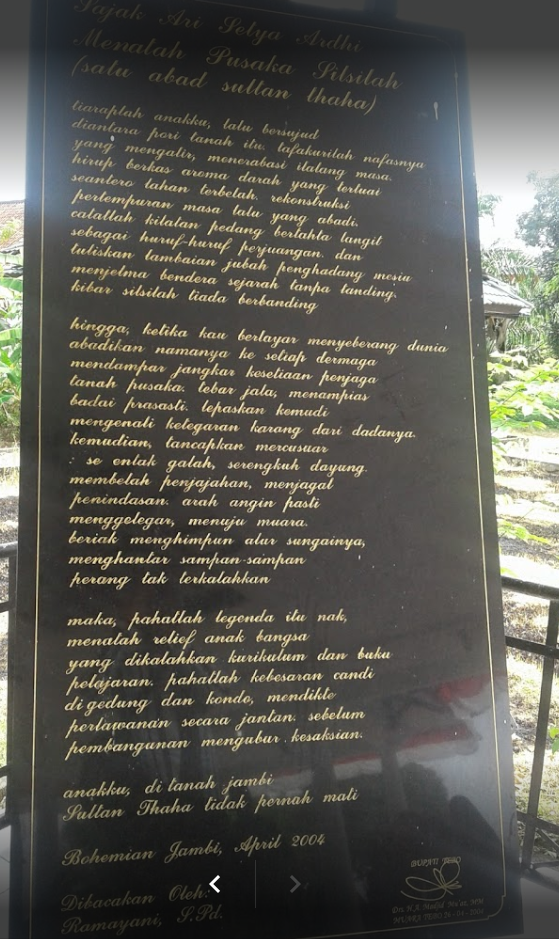 Sajak Ari Setya Ardhi
Menatah Pusaka Silsilah
(satu abad sultan thaha)
tiaraplah anakku, lalu bersujud
diantara pori tanah itu. tafakurilah nafasnya
yang mengalir, menerabasi ilalang masa.
hirup berkas aroma darah yang tertuai
seantero lahan terbelah. rekonstruksi
pertempuran masa lalu yang abadi.
catatlah kilatan pedang bertahta langit
sebagai huruf-huruf perjuangan. dan
tuliskan lambaian jubah penghadang mesiu
menjelma bendera sejarah tanpa tanding.
kibar silsilah tiada berbanding
hingga, ketika kau berlayar menyeberang dunia
abadikan namanya ke setiap dermaga
mendampar jangkar kesetiaan penjaga
tanah pusaka. tebar jala, menampias
badai prasasti. lepaskan kemudi
mengenali ketegaran karang dari dadanya.
kemudian, tancapkan mercusuar
se entak galah, serengkuh dayung.
membelah penjajahan, menjagal
penindasan. arah angin pasti
menggelegar, menuju muara.
beriak menghimpun alur sungainya,
menghantar sampan-sampan
perang tak terkalahkan
maka, pahatlah legenda itu nak,
menatah relief anak bangsa
yang dikalahkan kurikulum dan buku
pelajaran. pahatlah kebesaran candi
di gedung dan kondo, mendikte
perlawanan secara jantan. sebelum
pembangunan mengubur kesaksian.
anakku, di tanah jambi
Sultan Thaha tidak pernah mati
Bohemian Jambi, April 2004
Dibacakan Oleh:
Ramayani, S.Pd.
BUPATI TEBO
Drs. H.A. Madjid Mu'az, MM
MUARA TEBO, 26-04-2004